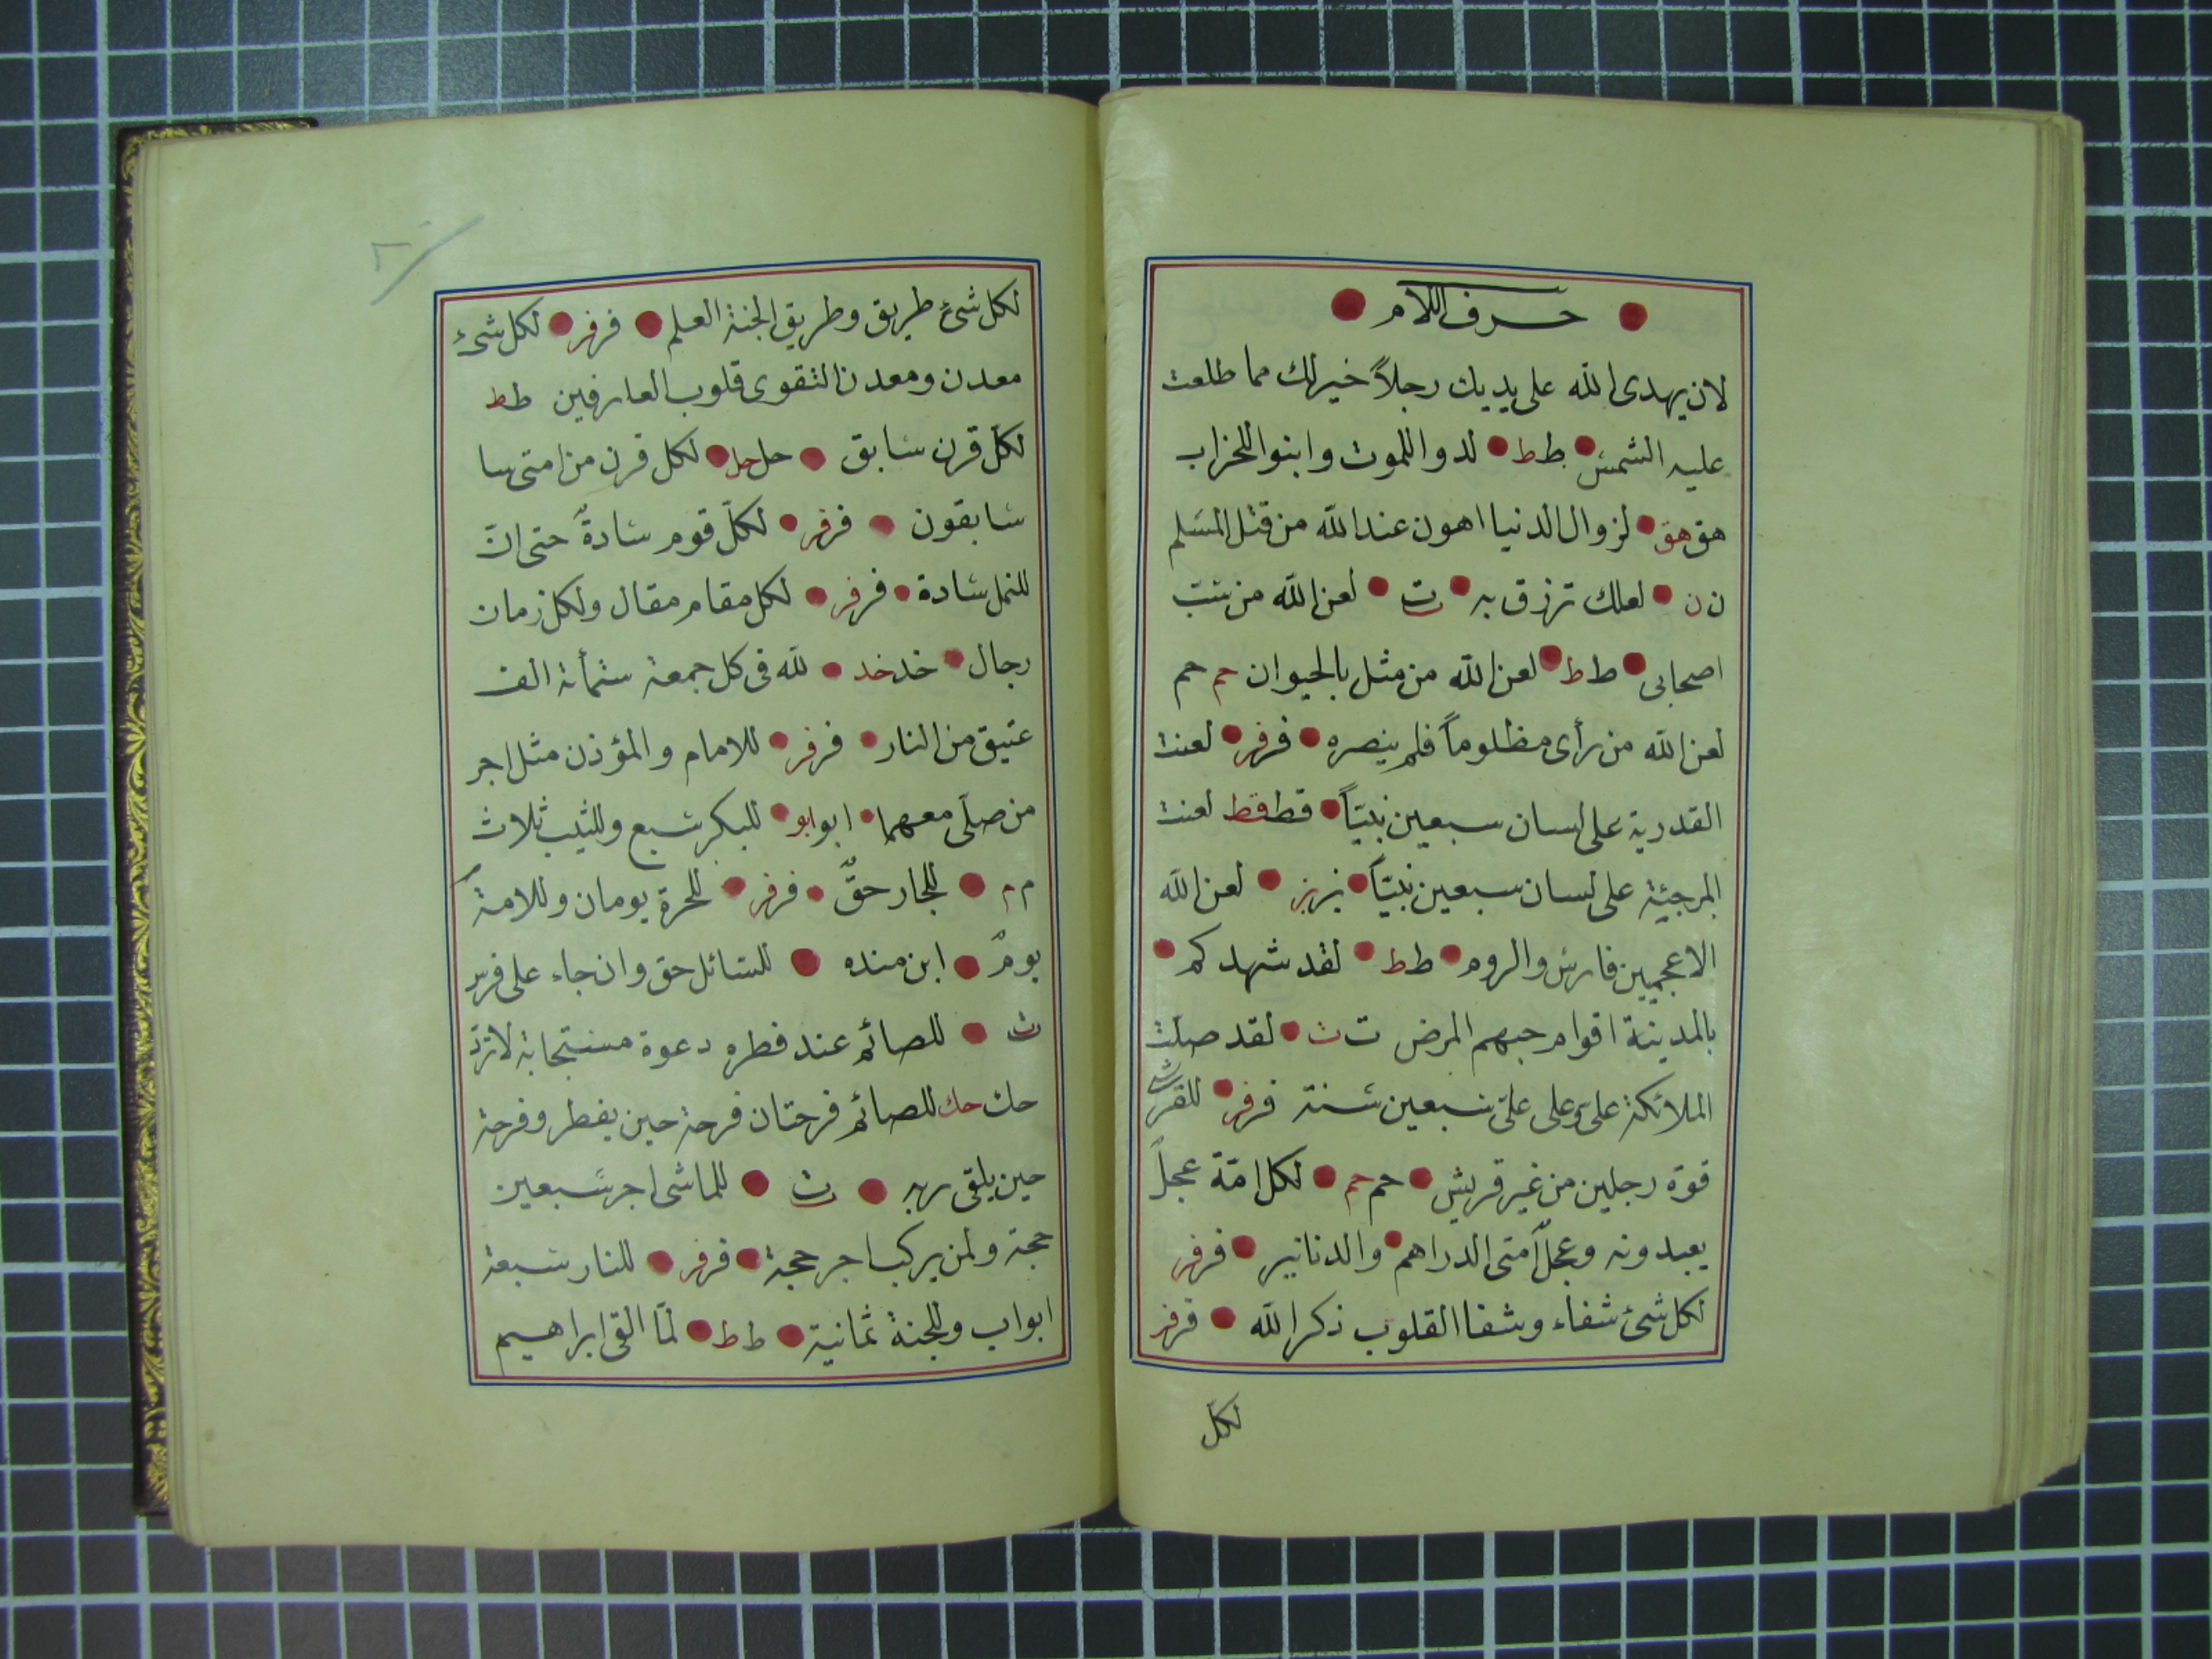 حرف اللام
لان يهدى الله على يديك رجلاً خير لك مما طلعت
عليه الشمس ط ط لدوا للموت وابنوا للخراب
هق هق لزوال الدنيا اهون عند الله من قتل المسلم
ن ن لعلك ترزق به ت لعن الله من سب
اصحابى ط ط لعن الله من مثل بالحيوان حم حم
لعن الله من رأى مظلوماً فلم ينصره فر فر لعنت
القدرية على لسان سبعين نبيّاً قط قط لعنت
المرجئة على لسان سبعين نبيّاً بز بز لعن الله
الاعجميين فارس والروم ط ط لقد شهدكم
بالمدينة اقوام حبهم المرض ت ت لقد صلت
الملائكة علىّ وعلى علىّ سبعين سنة فر فر للقرشى
قوة رجلين من غير قريش حم حم لكل امّة عجلاً
يعبدونه وعجل امتى الدراهم والدنانير فر فر
لكل شئ شفاء وشفا القلوب ذكر الله فر فر
لكل
لكل شئ طريق وطريق الجنة العلم فر فر لكل شئ
معدن ومعدن التقوى قلوب العارفين ط ط
لكل قرن سابق حل حل لكل قرن من امتى سا
سابقون فر فر لكلّ قوم سادةٌ حتى انّ
للنمل سادة فر فر لكل مقام مقال ولكل زمان
رجال خد خد لله فى كل جمعة ستمأئة الف
عتيق من النار فر فر للامام والمؤذن مثل اجر
من صلّى معهما ابو ابو للبكر سبع وللثيب ثلاث
م م للجار حقٌّ فر فر للحرة يومان وللامة
يومٌ ابن منده للسائل حق وان جاء على فرس
ت للصائم عند فطره دعوة مستجابة لا تردّ
حك حك للصائم فرحتان فرحة حين يفطر وفرحة
حين يلقى ربه ت للماشى اجر سبعين
حجة ولمن يركب اجر حجة فر فر للنار سبعة
ابواب وللجنة ثمانية ط ط لمّا القى ابراهيم